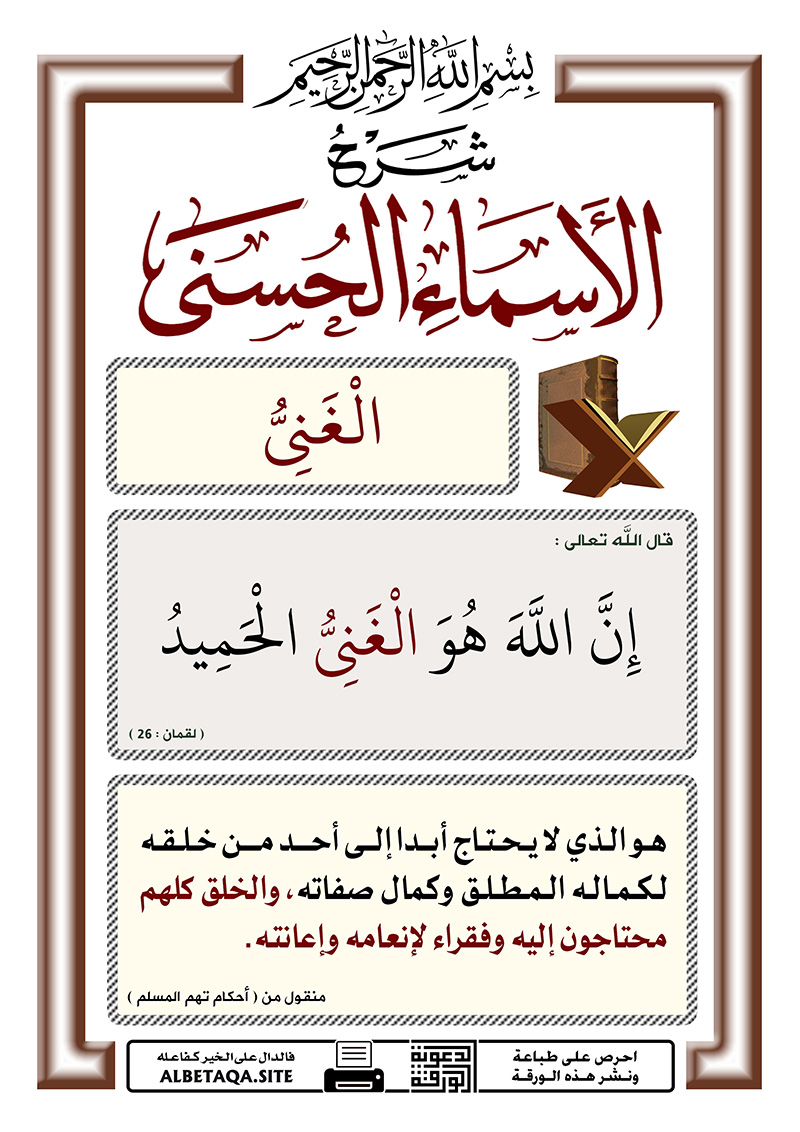 بِسْمِ اللَّهِ الرَّحْمَنِ الرَّحِيمِ
شَرْحُ
الأَسْمَاءِ الحُسْنَى
الْغَنِىُّ
قال اللَّه تعالى :
إِنَّ اللَّهَ هُوَ الْغَنِىُّ الْحَمِيدُ
( لقمان : 26 )
هو الذي لا يحتاج أبدا إلى أحد من خلقه
لكماله المطلق وكمال صفاته، والخلق كلهم
محتاجون إليه وفقراء لإنعامه وإعانته.
منقول من ( أحكام تهم المسلم )
احرص على طباعة
ونشر هذه الورقة
الورقة
الدعوية
فالدال على الخير كفاعله
ALBETAQA.SITE